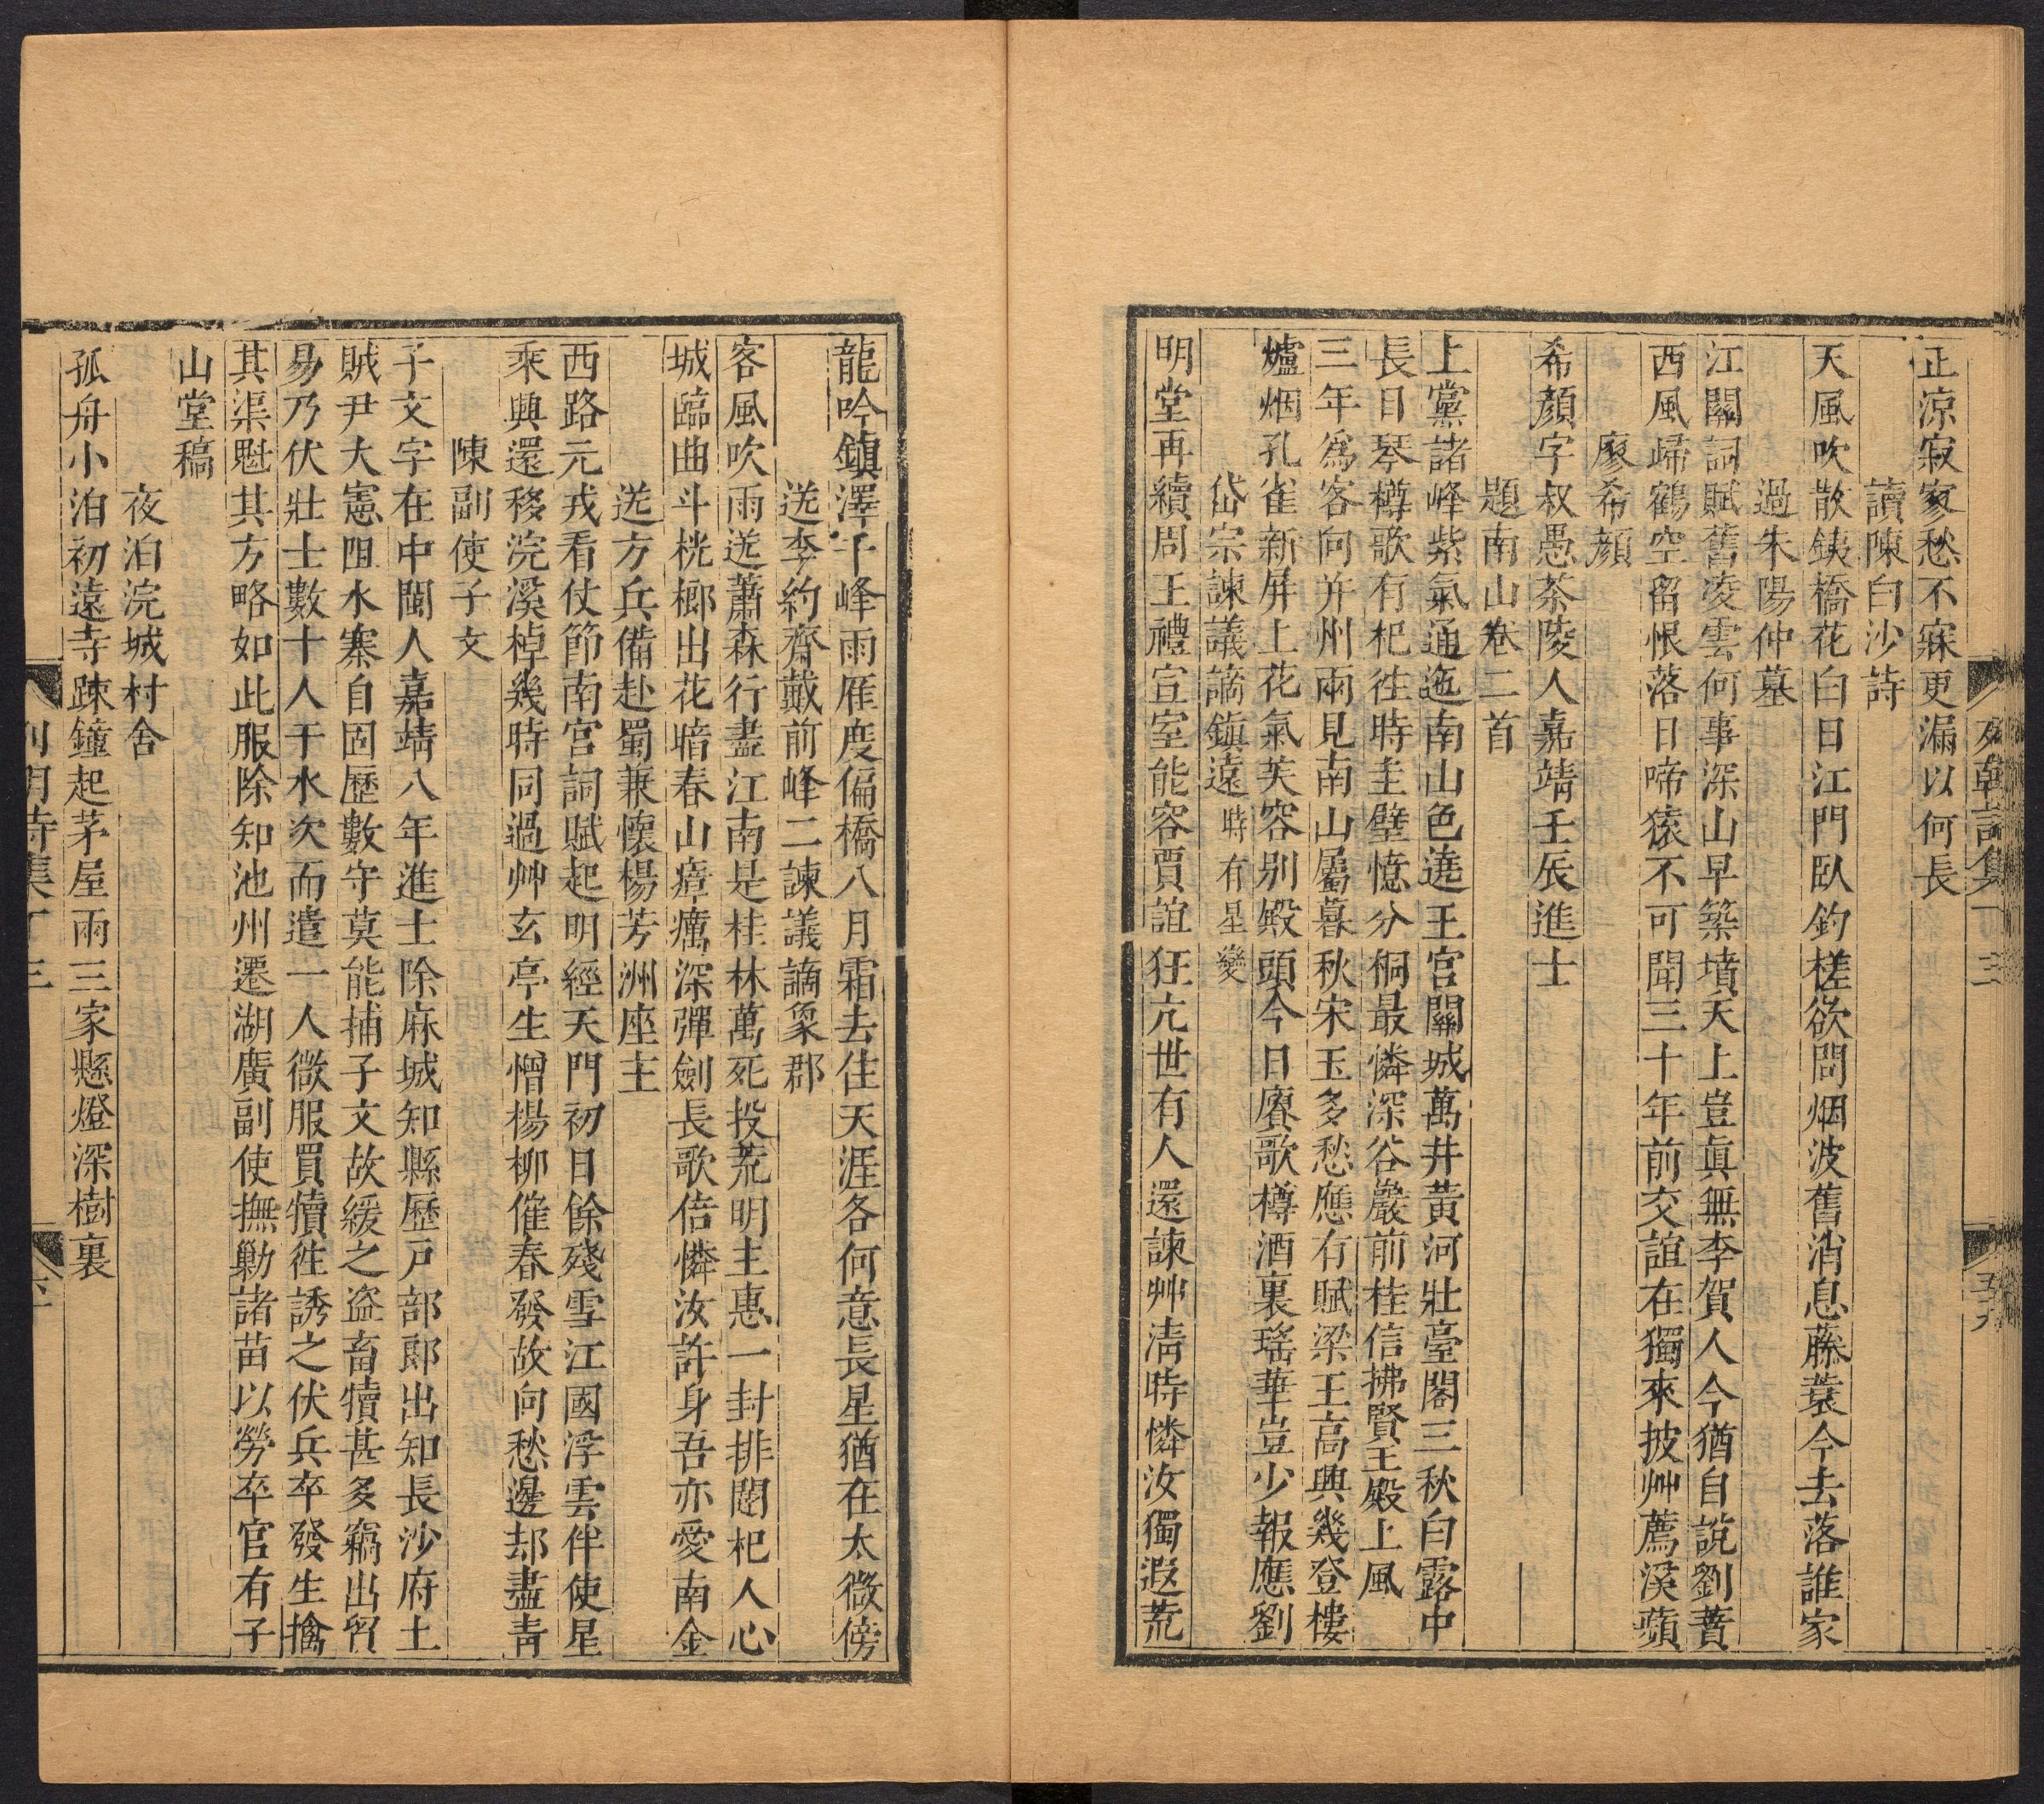 正凉寂寂愁不寐更漏以何長
讀陳白沙詩
天風吹散鉄橋花白日江門臥釣槎欲問烟波舊消息藤蓑今去落誰家
過朱陽仲墓
江關詞賦舊凌雲何事深山早築墳天上豈眞無李賀人今猶自說劉蕡
西風歸鶴空留恨落日啼猿不可聞三十年前交誼在獨來披艸薦溪蘋
廖希顏
希顏字叔愚茶陵人嘉靖壬辰進士
題南山卷二首
上黨諸峰紫氣通迤南山色遶王宮關城萬井黃河壯臺閣三秋白露中
長日琴樽歌有杞徃時圭璧憶分桐最憐深谷巖前桂信拂賢王殿上風
三年爲客向并州兩見南山屬暮秋宋玉多愁應有賦梁王高興幾登樓
爐烟孔雀新屏上花氣芙容別殿頭今日賡歌樽酒裏瑤華豈少報應劉
岱宗諫議謫鎮遠時有星變
明堂再續周王禮宣室能容賈誼狂亢世有人還諫艸淸時憐汝獨遐荒
列朝詩集丁三
五九
龍吟鎮澤千峰雨雁度偏橋八月霜去住天涯各何意長星猶在太微傍
送李約齋戴前峰二諫議謫象郡
客風吹雨送蕭森行盡江南是桂林萬死投荒明主惠一封排闥杞人心
城臨曲斗桄榔出花暗春山瘴癘深彈劍長歌倍憐汝許身吾亦愛南金
送方兵備赴蜀兼懷楊芳洲座主
西路元戎看仗節南宮詞賦起明經天門初日餘殘雪江國浮雲伴使星
乘興還移浣溪棹幾時同過艸玄亭生憎楊柳催春發故向愁邊却盡靑
陳副使子文
子文字在中閩人嘉靖八年進士除麻城知縣歷戶部郎出知長沙府土
賊尹大憲阻水寨自固歷數守莫能捕子文故緩之盜畜犢甚多竊出貿
易乃伏壯士數十人于水次而遣一人微服買犢徃誘之伏兵卒發生擒
其渠魁其方略如此服除知池州遷湖廣副使撫勦諸苗以勞卒官有子
山堂稿
夜泊浣城村舍
孤舟小泊初遠寺疎鐘起茅屋兩三家懸燈深樹裏
列朝詩集丁三